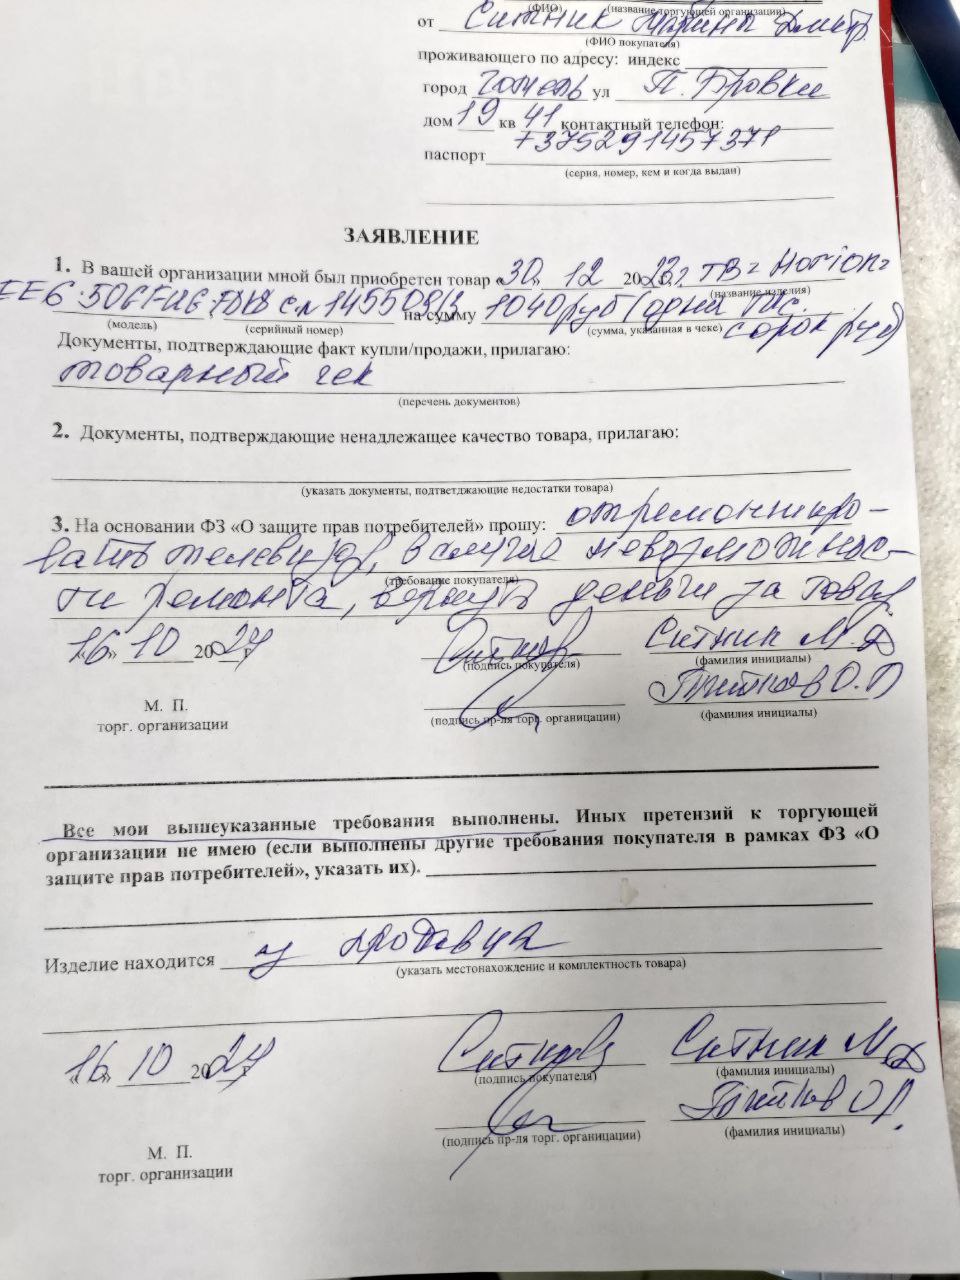 (ФИО) (название торгующей организации)
от Ситник Марина Дмитр.
(ФИО покупателя)
проживающего по адресу: индекс
город Гомель ул П. Бровки
дом 19 кв 41 контактный телефон:
+375291457371
паспорт
(серия, номер, кем и когда выдан)
ЗАЯВЛЕНИЕ
1. В вашей организации мной был приобретен товар «30» 12 2023 г. ТВ - Horion -
(название изделия)
с.н 1455 на сумму 1040 руб (одна тыс.
(модель) (серийный номер) (сумма, указанная в чеке) сорок руб)
Документы, подтверждающие факт купли/продажи, прилагаю:
товарный чек
(перечень документов)
2. Документы, подтверждающие ненадлежащее качество товара, прилагаю:
(указать документы, подтветджающие недостатки товара)
3. На основании ФЗ «О защите прав потребителей» прошу: отремонтиро-
вать телевизор, в случае невозможнос-
(требование покупателя)
ти ремонта, вернуть деньги за товар
«16» 10 2024 г Ситник М.Д
(подпись покупателя) (фамилия инициалы)
М. П.
торг. организации (подпись пр-ля торг. органицации) (фамилия инициалы)
Все мои вышеуказанные требования выполнены. Иных претензий к торгующей
организации не имею (если выполнены другие требования покупателя в рамках ФЗ «О
защите прав потребителей», указать их).
Изделие находится у продавца
(указать местонахождение и комплектность товара)
«16» 10 2024 г Ситник М.Д
(подпись покупателя) (фамилия инициалы)
(подпись пр-ля торг. органицации) (фамилия инициалы)
М. П.
торг. организации